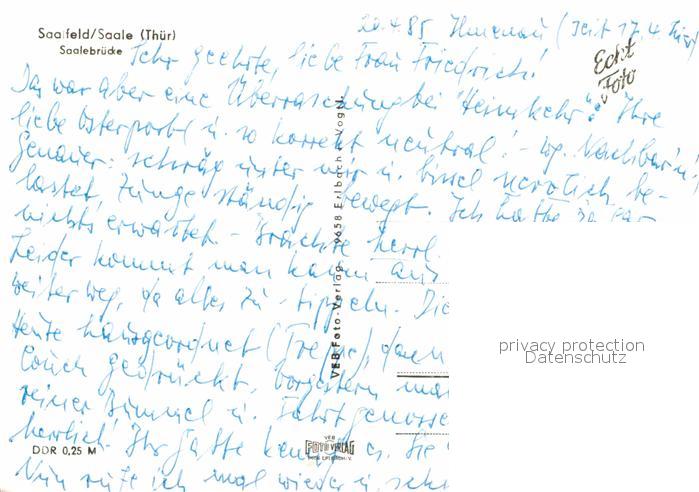 Saalfeld/Saale (Thür)
Saalebrücke
20.4.85 Ilmenau (seit 17.4. hier)
Echt
Foto
Sehr geehrte, liebe Frau Friedrich!
Das war aber eine Überraschung bei "Heimkehr". Ihre
liebe Osterpost u. so korrekt neutral! - wg. Nachbar'in!
Genauer: schräg unter mir u. bissel nervlich be-
lastet, Zunge ständig bewegt. Ich hatte ja gar
nichts erwartet - herrl.
Leider kommt man kaum aus
weiter weg, da alles zu tippeln. Die
Heute hausgeordnet (Treppe), dann
Couch gedrückt, vorgestern
reiner Bummel u. Fahrtgenosse
herrlich! Ihr Gatte kennt es. Sie
Nun rufe ich mal wieder u.
VEB Foto-Verlag 9658 Erlbach i. Vogtl.
VEB
FOTO VERLAG
9658 ERLBACH i. V.
DDR 0,25 M
privacy protection
Datenschutz